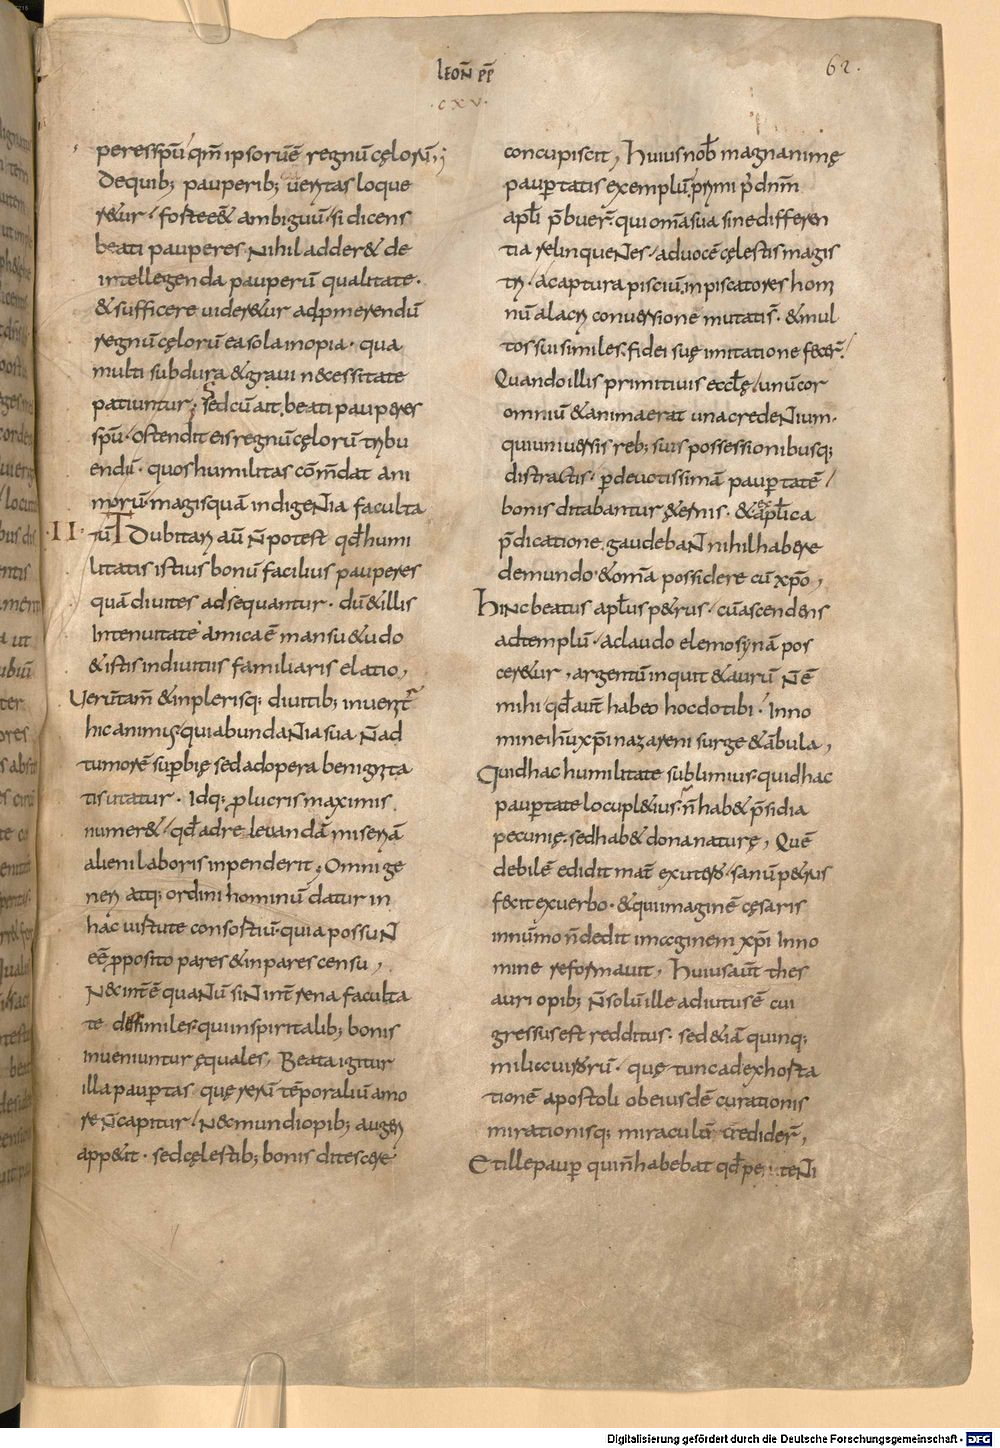 LEOÑ PP̄
·CXV·
62.
peresspū qm̄ ipsorūē regnū cęlorū,
Dequib; pauperib; ueritas loque
r&ur / fostee& ambiguū / si dicens
beati pauperes · Nihil adder& de
intellegenda pauperū qualitate ·
& sufficere uider&ur adpmerendū
regnū cęlorū ea sola inopia · qua
multi sub dura & graui necessitate
patiuntur; Sed cū ait beati pauperes
spū / ostendit eis regnū cęlorū tribu
endū · quos humilitas cōmdat ani
morū magis quā indigeNia faculta
·II· tū Dubitari aū N̄ potest qđ humi
litatis istius bonū facilius pauperes
quā diuites adsequantur · dū & illis
Intenuitate amicaē mansu&udo
& istis indiuitiis familiaris elatio,
Uerūtam̄ & inplerisq; diuitib; inuenit̄
hic animus · qui abundaNia sua N̄ ad
tumorē supbię sed ad opera benignita
tis utatur · Idq; p lucris maximis
numer& / qđ ad releuandā miseriā
alieni laboris inpenderit; Omni ge
neri atq; ordini hominū datur in
hac uirtute consortiū · quia possuN
eē pposito pares & inpares censu,
N& intē quaNū siN int̄rena faculta
te dissimiles · qui inspiritalib; bonis
inueniuntur ęquales, Beata igitur
illa paup̄tas quę rerū tēporaliū amo
re N̄ capitur / N& mundi opib; augeri
app&it · sed cęlestib; bonis ditescere
concupiscit, Huius nob̄ magnanimę
paup̄tatis exemplū primi p̄ dnm̄
apłi p̄buer̄ · qui om̄a sua sine differen
tia relinqueNes / ad uocē cęlestis magis
tri · a captura pisciū in piscatores homi
nū alacri conuersione mutatis · & mul
tos sui similes fidei suę imitatione fecer̄ /
Quando illis primitiuis ecclę / unū cor
omniū & anima erat una credeNium ·
qui uniuersis reb; suis possessionibusq;
distractis / p deuotissimā paup̄tatē /
bonis ditabantur &ernis · & ex aplica
p̄dicatione gaudebaN nihil habere
de mundo · & om̄a possidere cū xp̄o,
Hinc beatus apłus p&rus / cū ascendens
ad templū / a claudo elemosynā pos
cer&ur, argentū inquit & aurū N̄ ē
mihi / qđ aut̄ habeo hoc do tibi · Inno
mine ihū xp̄i nazareni surge & ābula,
Quid hac humilitate sublimius · quid hac
paup̄tate locupl&ius · n̄ hab& p̄sidia
pecunię · sed hab& dona naturę, Quē
debilē edidit mat̄ ex utero / sanū p&rus
fecit ex uerbo · & qui imaginē cęsaris
in nūmo n̄ dedit imaginem xp̄i Inno
mine reformauit, Huius aut̄ thes
auri opib; N̄ solū ille adiutus ē cui
gressus est redditus · sed & iā quinq;
milia uirorū · quę tunc ad exhorta
tionē apostoli ob eiusdē curationis
mirationisq; miraculū credider̄,
Et ille paup̄ qui n̄ habebat qđ teNi
Digitalisierung gefördert durch die Deutsche Forschungsgemeinschaft - DFG